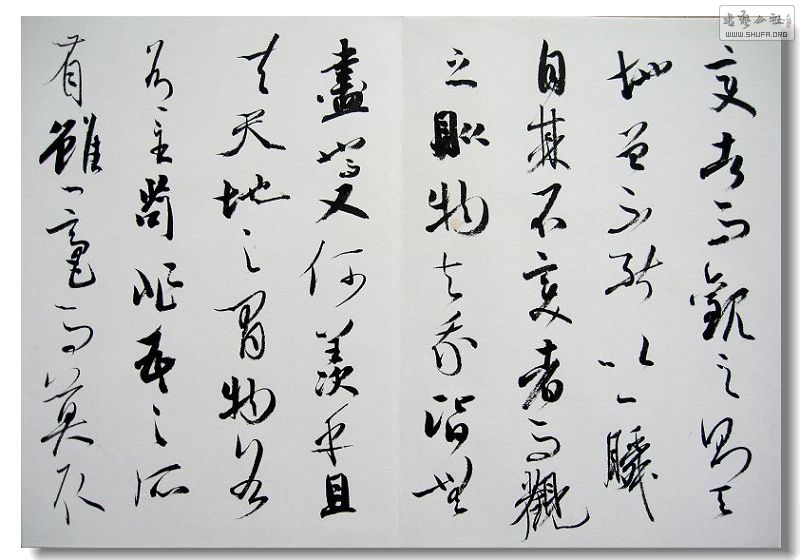 变者而觀之則天
地曾不能以一瞬
自其不变者而觀
之則物与我皆無
盡也而又何羡乎且
夫天地之間物各
有主苟非吾之所
有雖一毫而莫取
書藝公社
WWW.SHUFA.ORG